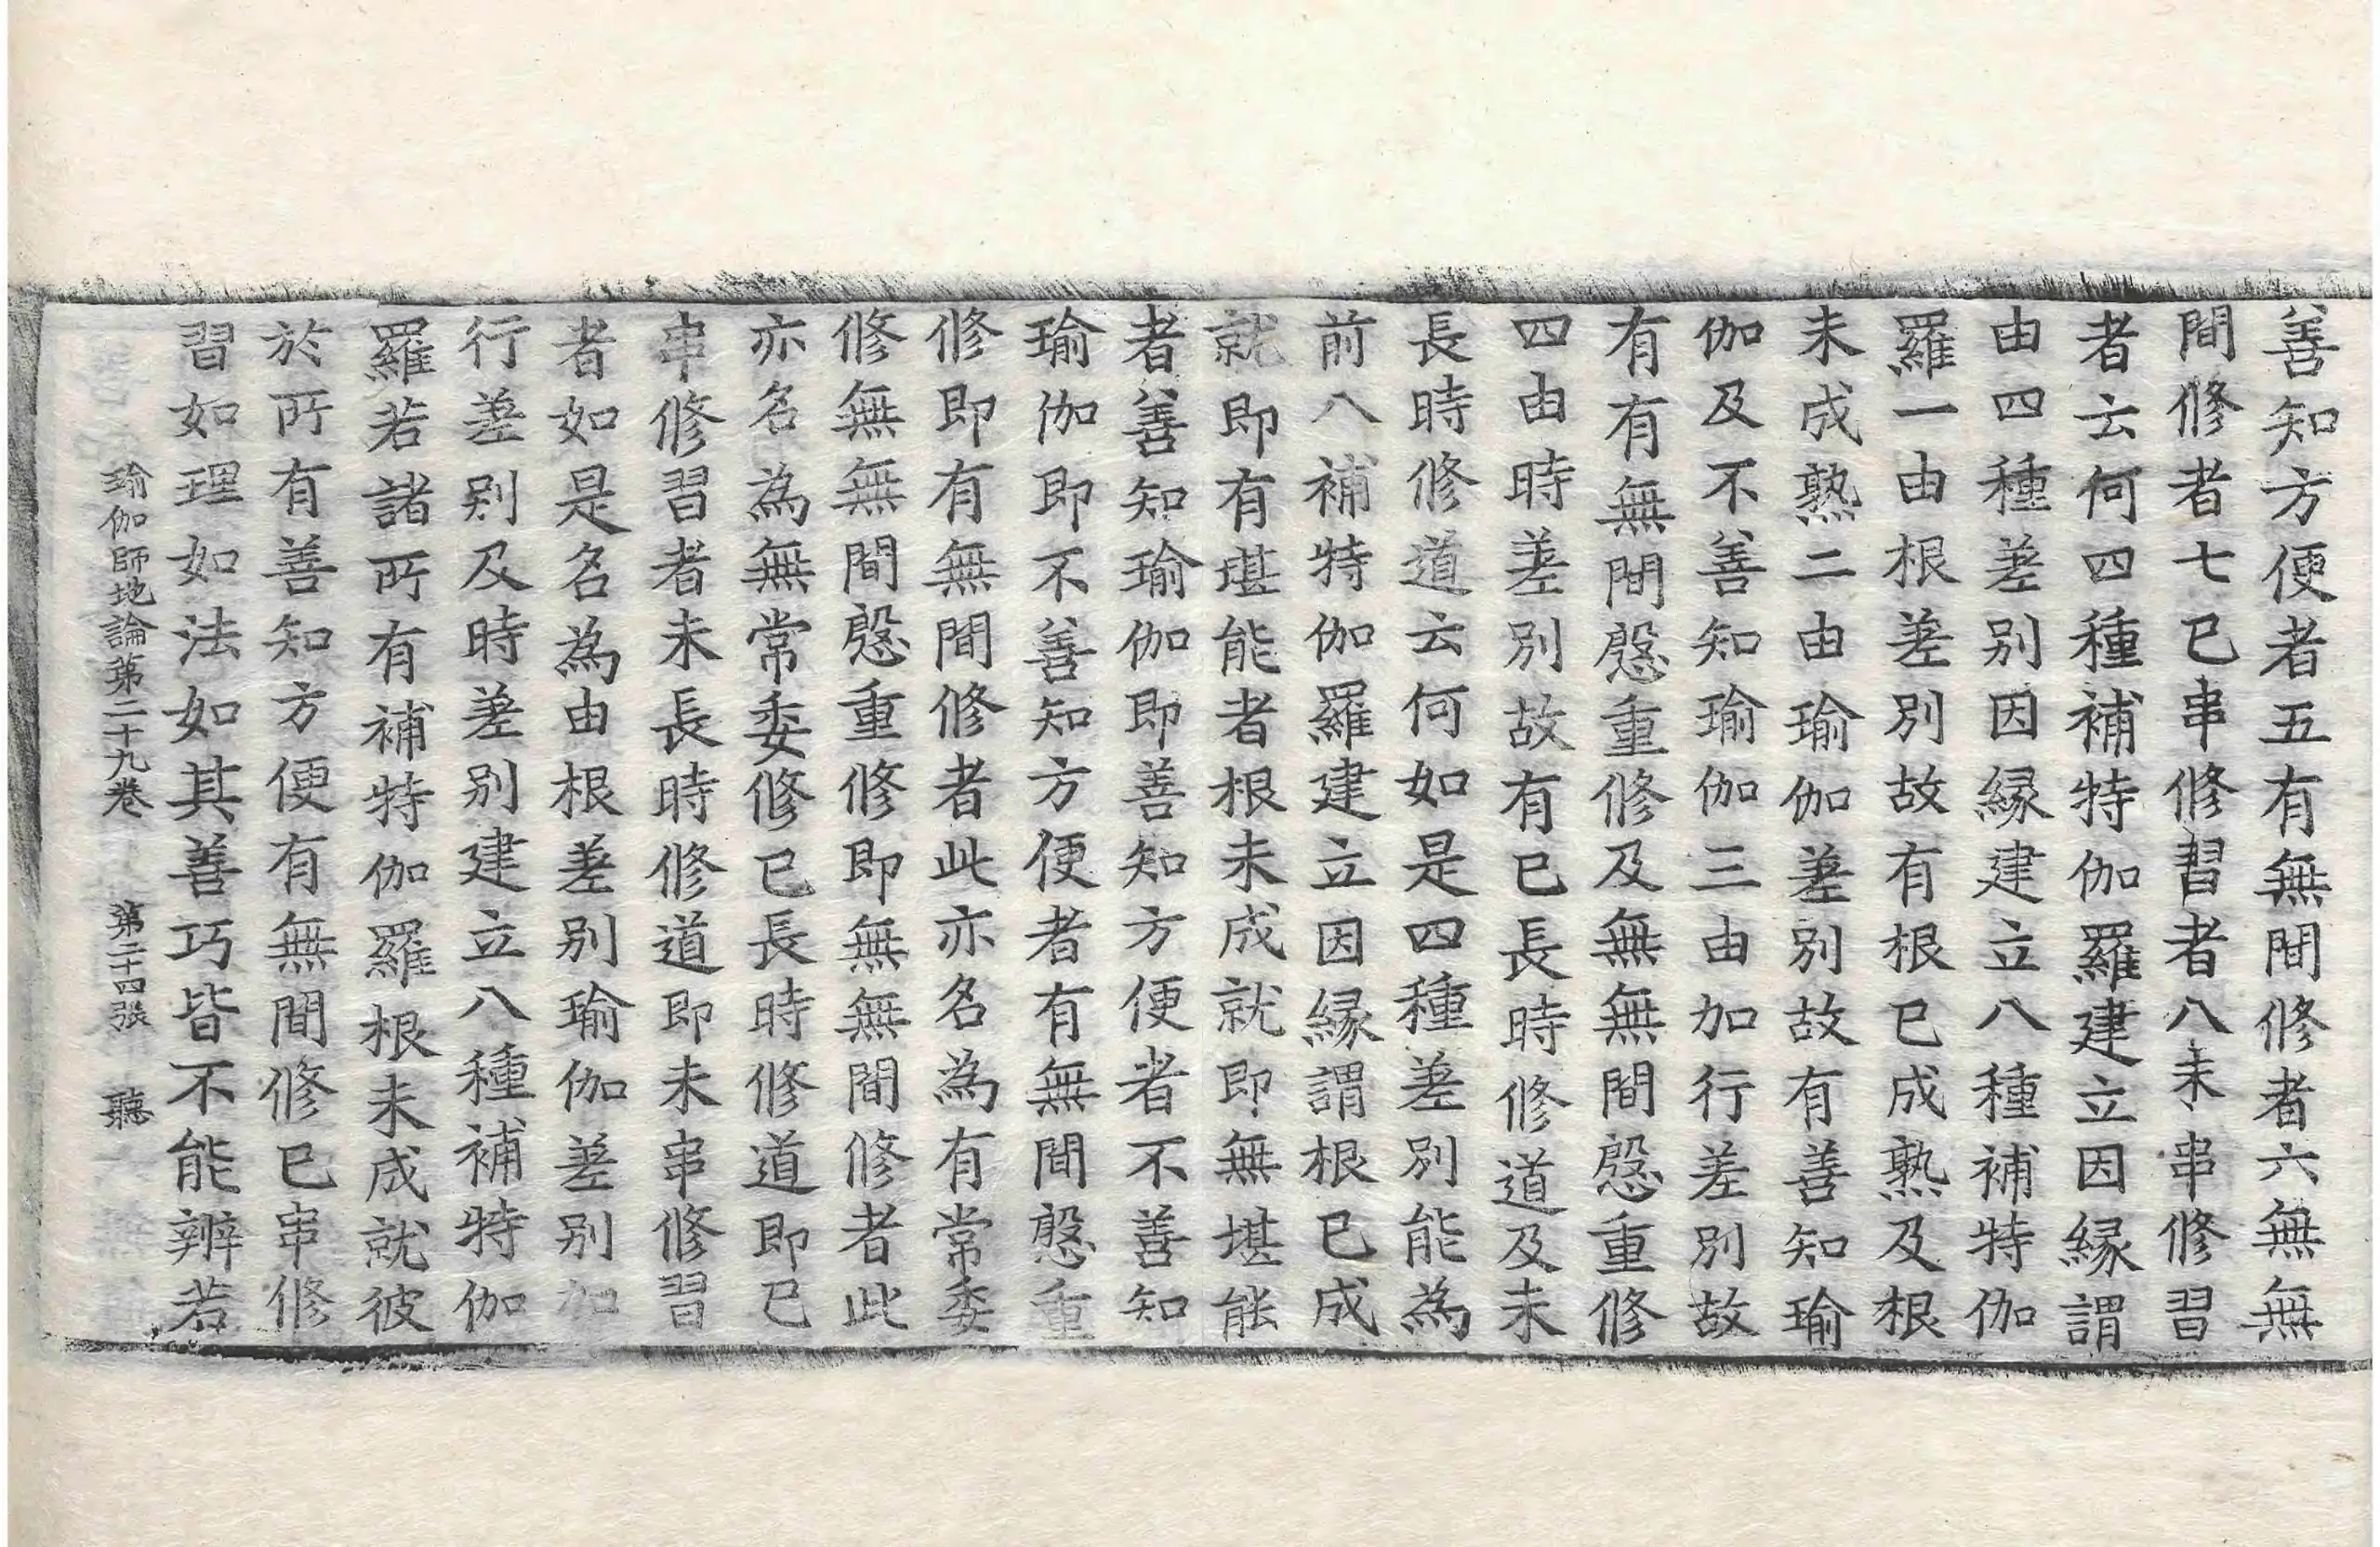 善知方便者五有無間修者六無無
間修者七已串修習者八未串修習
者云何四種補特伽羅建立因縁謂
由四種差别因縁建立八種補特伽
羅一由根差别故有根已成熟及根
未成熟二由瑜伽差别故有善知瑜
伽及不善知瑜伽三由加行差别故
有有無間慇重修及無無間慇重修
四由時差别故有已長時修道及未
長時修道云何如是四種差别能為
前八補特伽羅建立因縁謂根已成
就即有堪能者根未成就即無堪能
者善知瑜伽即善知方便者不善知
瑜伽即不善知方便者有無間慇重
修即有無間修者此亦名為有常委
修無無間慇重修即無無間修者此
亦名為無常委修已長時修道即已
串修習者未長時修道即未串修習
者如是名為由根差别瑜伽差别加
行差别及時差别建立八種補特伽
羅若諸所有補特伽羅根未成就彼
於所有善知方便有無間修已串修
習如理如法如其善巧皆不能辨若
瑜伽師地論第二十九卷 第二十四張 聽